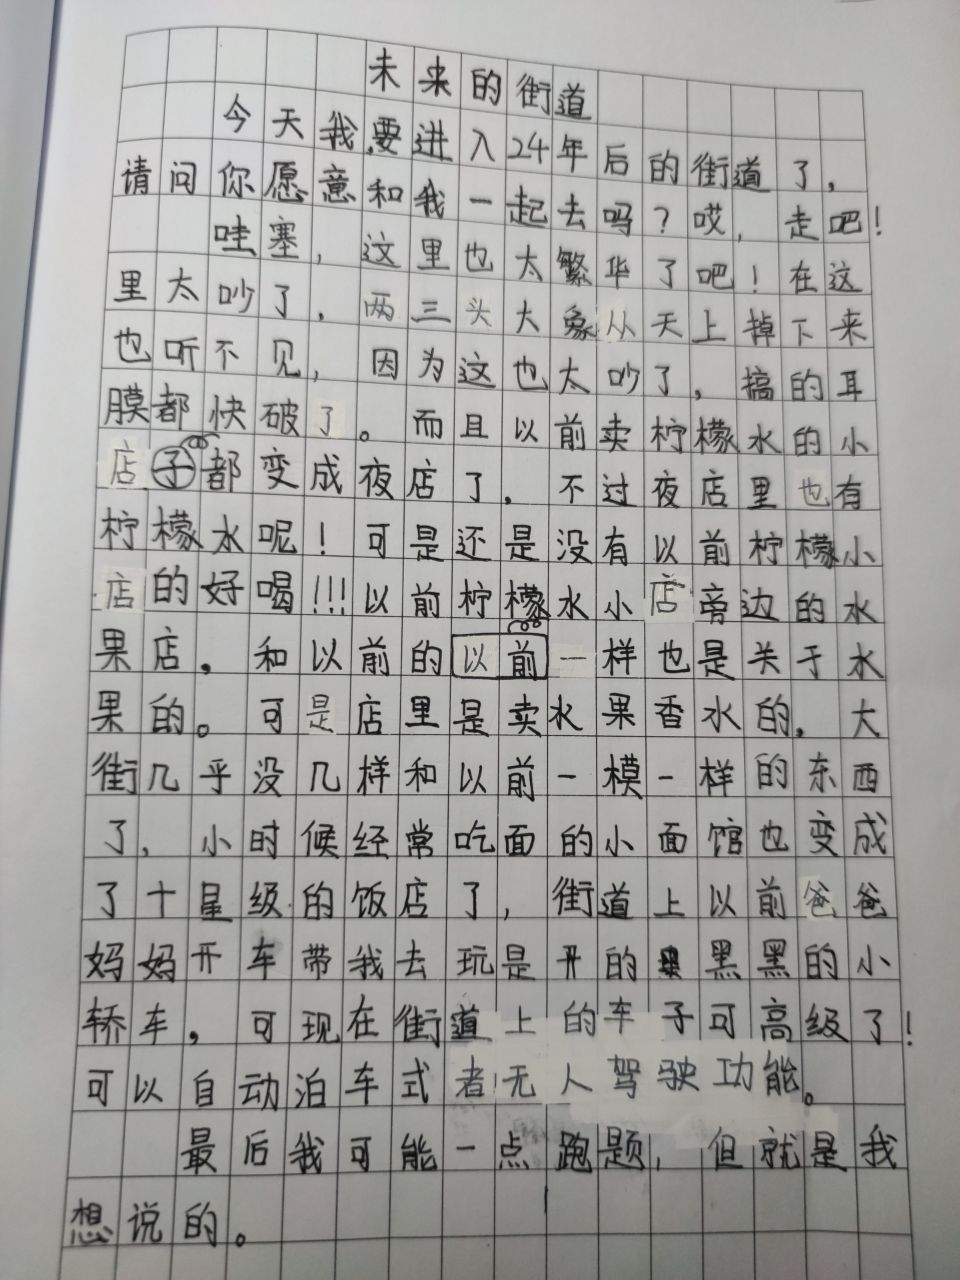 未来的街道
今天我要进入24年后的街道了，
请问你愿意和我一起去吗？哎，走吧！
哇塞，这里也太繁华了吧！在这
里太吵了，两三头大象从天上掉下来
也听不见，因为这也太吵了，搞的耳
膜都快破了。而且以前卖柠檬水的小
店子都变成夜店了，不过夜店里也有
柠檬水呢！可是还是没有以前柠檬小
店的好喝!!!以前柠檬水小店旁边的水
果店，和以前的以前一样也是关于水
果的。可是店里是卖水果香水的，大
街几乎没几样和以前一模一样的东西
了，小时候经常吃面的小面馆也变成
了十星级的饭店了，街道上以前爸爸
妈妈开车带我去玩是开的黑黑的小
轿车，可现在街道上的车子可高级了！
可以自动泊车式者无人驾驶功能。
最后我可能一点跑题，但就是我
想说的。